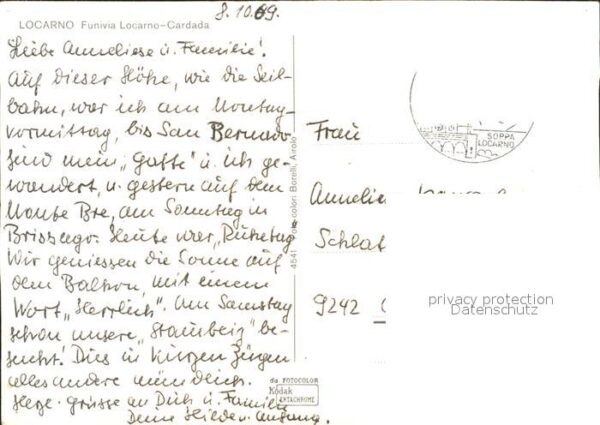 8.10.69.
LOCARNO Funivia Locarno-Cardada
Liebe Anneliese u. Familie!
Auf dieser Höhe, wie die Seil-
bahn, war ich am Montag-
vormittag, bis San Bernado
sind mein „Gatte" u. ich ge-
wandert, u. gestern auf dem
Monte Bre, am Sonntag in
Brissago. Heute war „Ruhetag
Wir geniessen die Sonne auf
dem Balkon, mit einem
Wort „Herrlich". Am Samstag
schon unsere be-
sucht! Dies in kurzen Zügen
alles andere mündlich.
Herz. grüsse an Dich u. Familie
Deine
4541 Borelli, Airolo
da FOTOCOLOR
Kodak
EKTACHROME
SOPRA
LOCARNO
Frau
Annelie
Schlat
9242
privacy protection
Datenschutz